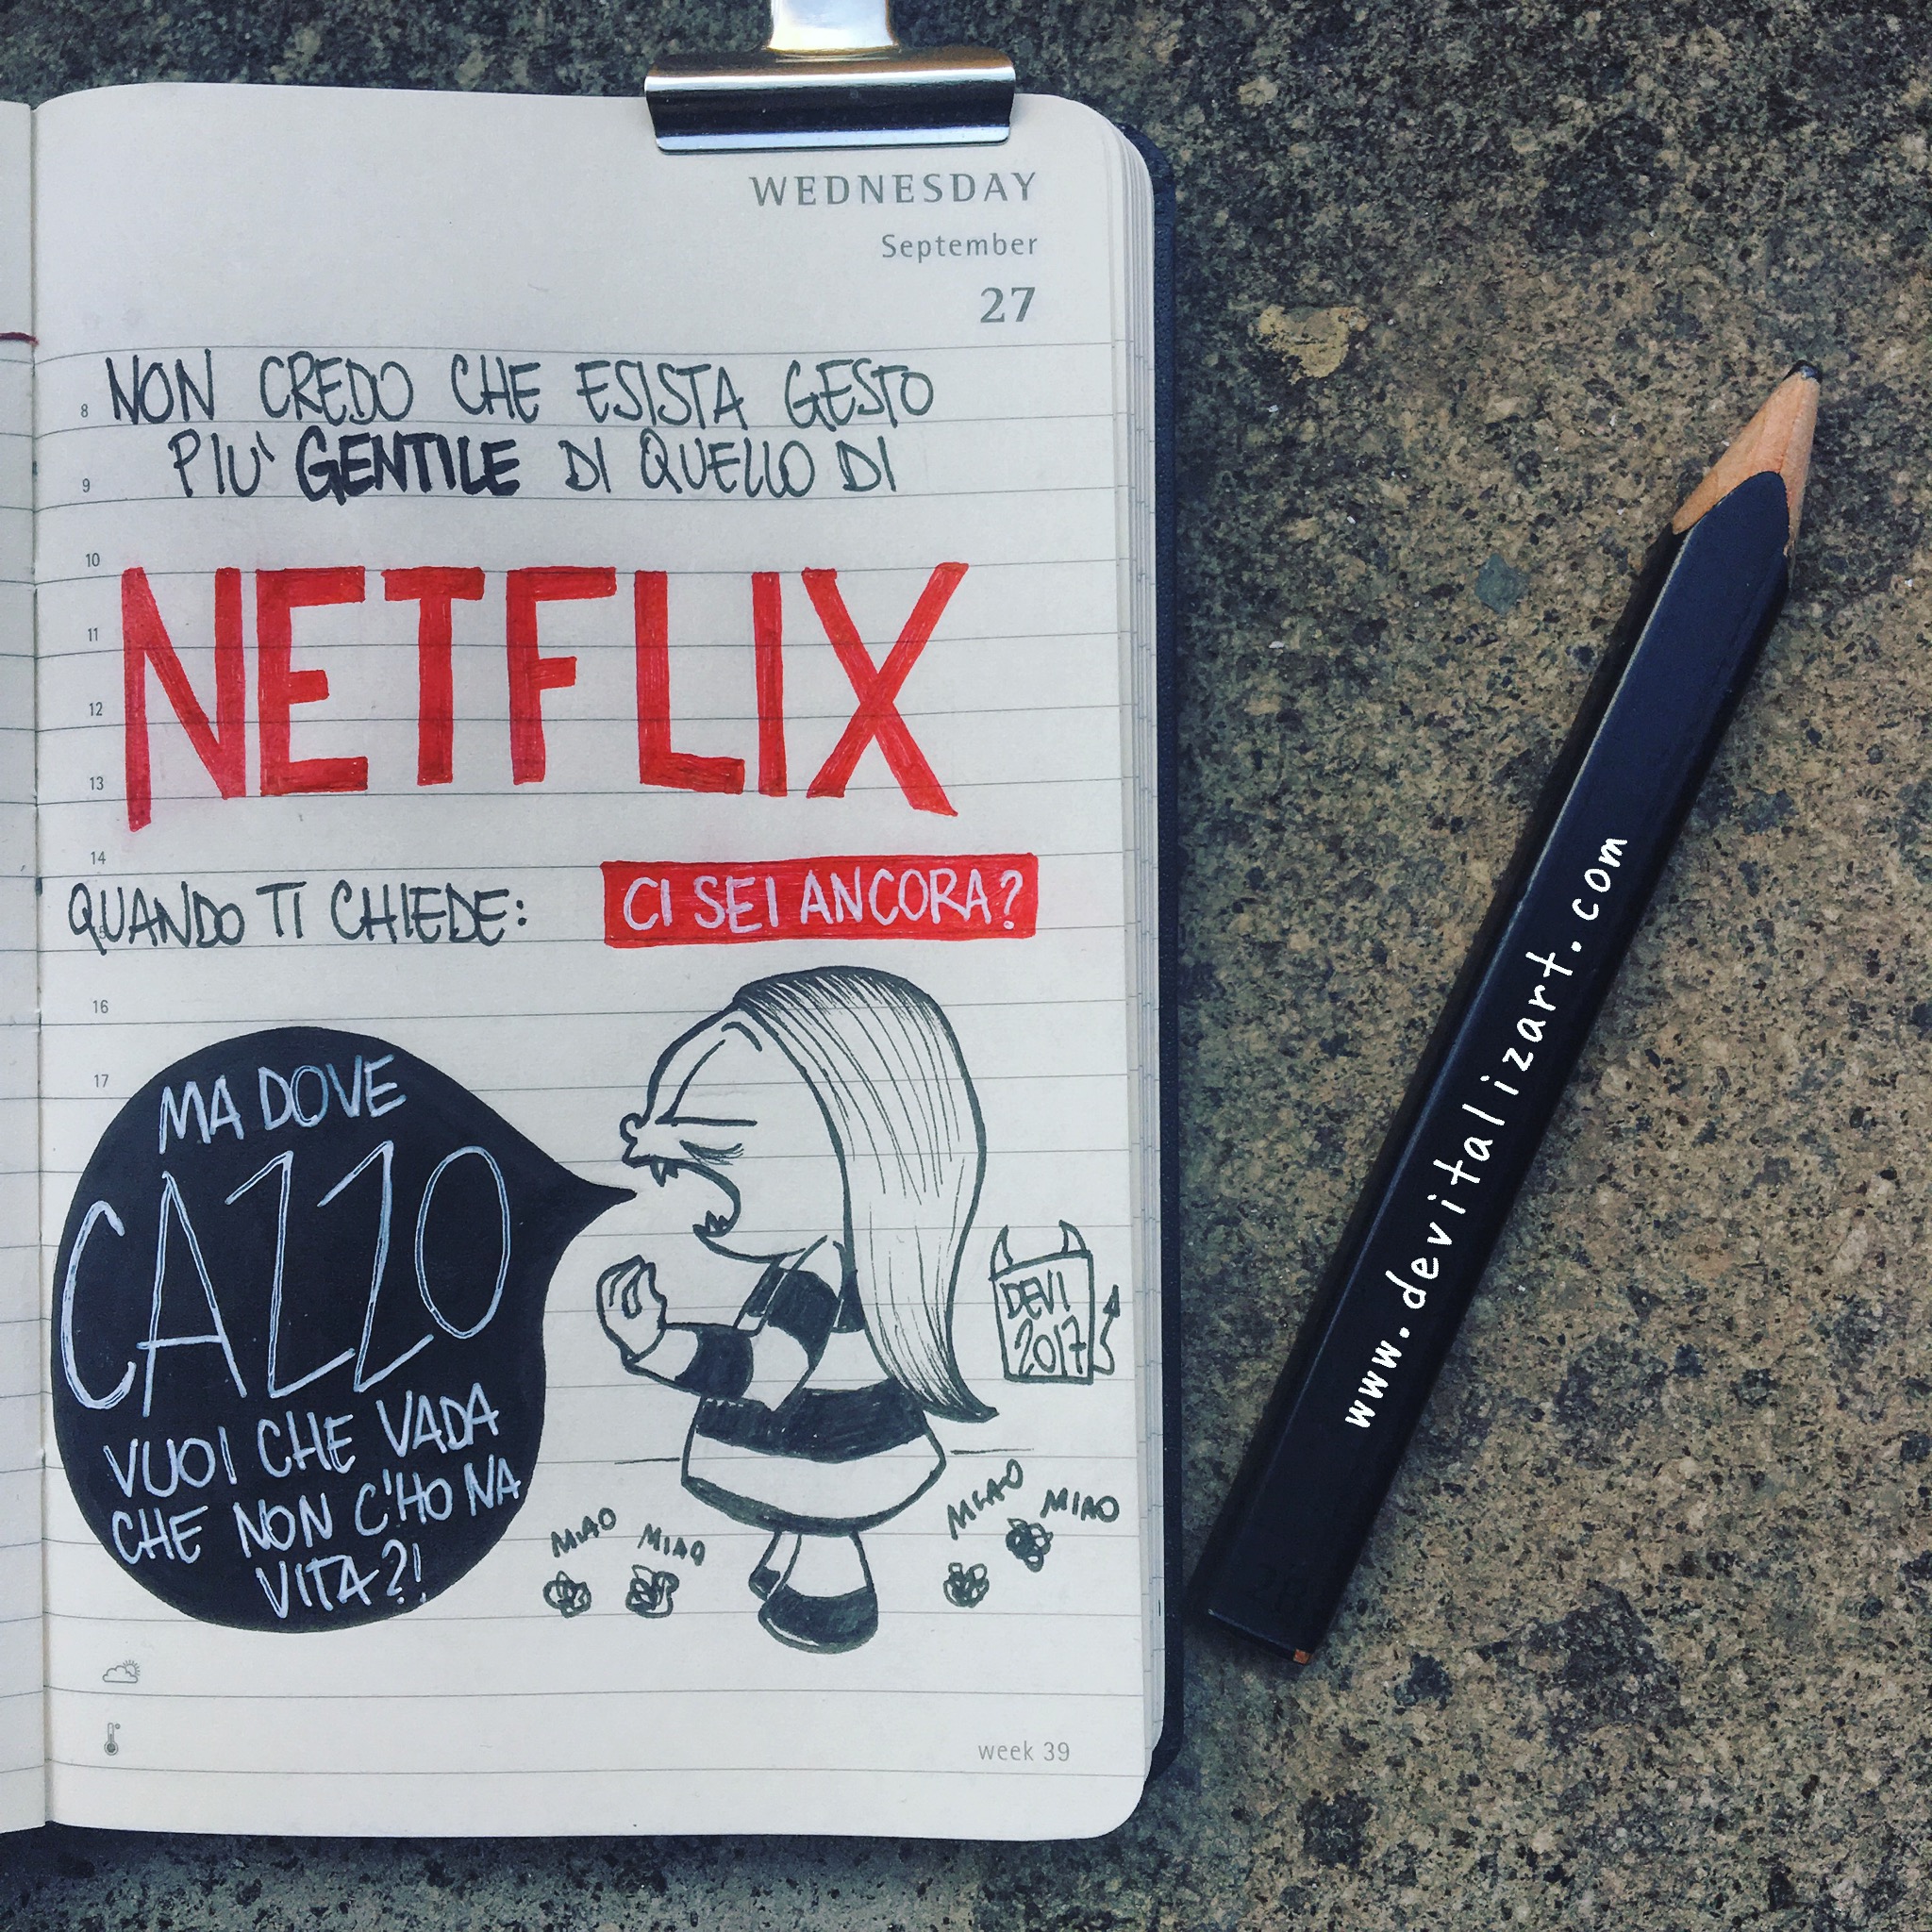 WEDNESDAY
September
27
NON CREDO CHE ESISTA GESTO
PIU' GENTILE DI QUELLO DI
NETFLIX
QUANDO TI CHIEDE: CI SEI ANCORA?
MA DOVE
CAZZO
VUOI CHE VADA
CHE NON C'HO NA
VITA?!
DEVI
2017
MIAO MIAO
MIAO MIAO
8
9
10
11
12
13
14
16
17
week 39
www.devitalizart.com